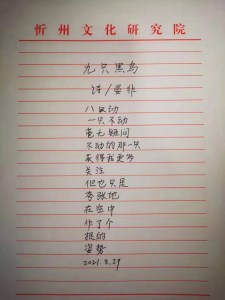 忻州文化研究院
九只黑鸟
诗/晏非
八只动
一只不动
毫无疑问
不动的那一只
获得我更多
关注
但也只是
夸张地
在空中
作了个
捉的
姿势
2021.8.29